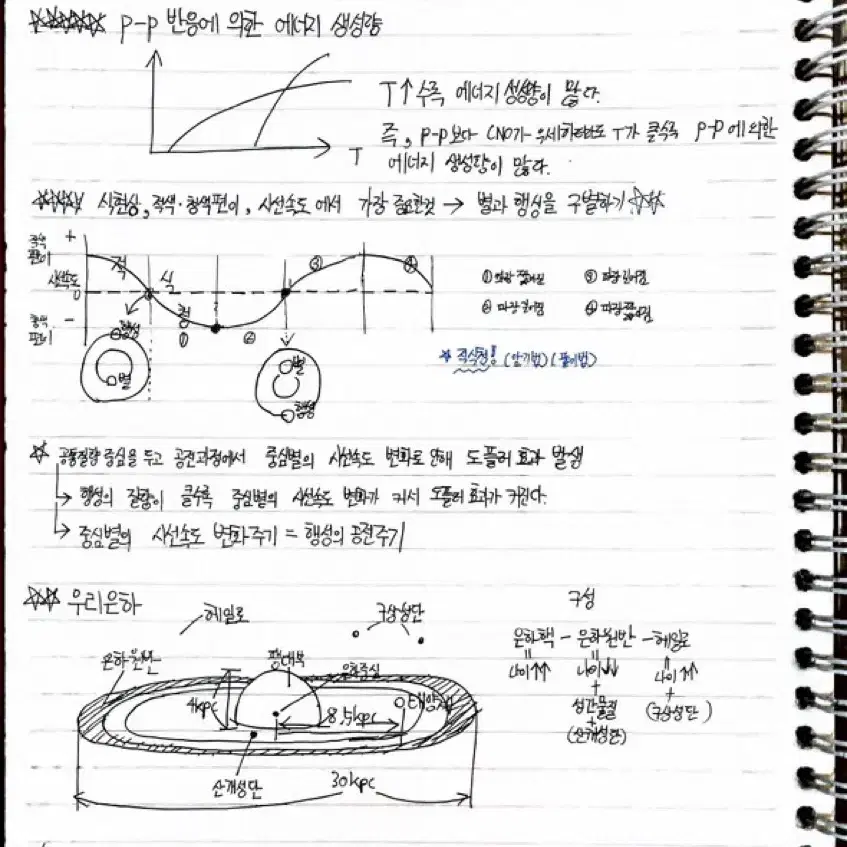 p-p 반응에 의한 에너지 생성량
T↑수록 에너지 생성량이 많다.
즉, p-p보다 CNO가 우세하더라도 T가 클수록 p-p에 의한
T
에너지 생성량이 많다.
식현상, 적색·청색편이, 시선속도에서 가장 중요한것 → 별과 행성을 구별하기
적색편이 +
시선속도 0
청색편이 -
적 식 청
① ② ③ ④
① 파장 짧아짐 ③ 파장 길어짐
② 파장 길어짐 ④ 파장 짧아짐
행성
별
별
행성
적식청! (암기법) (풀이법)
공통질량 중심을 두고 공전과정에서 중심별의 시선속도 변화로 인해 도플러 효과 발생
→ 행성의 질량이 클수록 중심별의 시선속도 변화가 커서 도플러 효과가 커진다.
→ 중심별의 시선속도 변화주기 = 행성의 공전주기
우리은하
헤일로 구상성단
은하원반 팽대부 은하중심
4kpc 8.5kpc 태양계
산개성단
30kpc
구성
은하핵 - 은하원반 - 헤일로
나이↑↑ 나이↓↓ 나이↑↑
+ +
성간물질 (구상성단)
+
(산개성단)